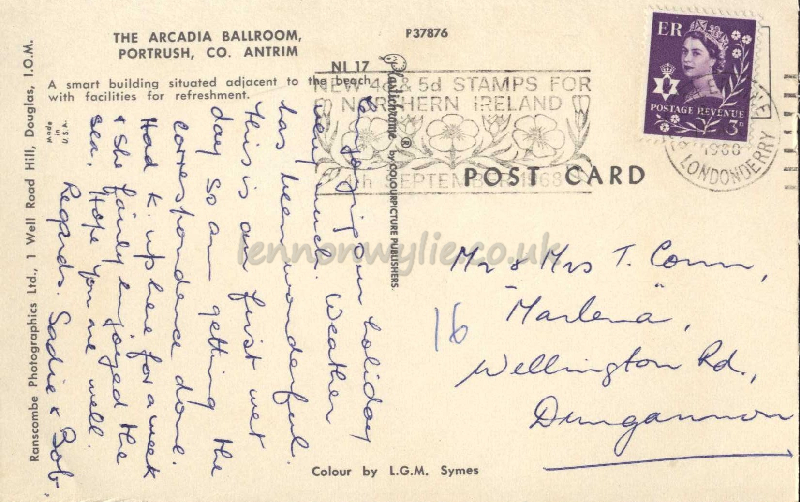 THE ARCADIA BALLROOM,
PORTRUSH, CO. ANTRIM
A smart building situated adjacent to the beach
with facilities for refreshment.
P37876
NI 17
NEW 4d & 5d STAMPS FOR
NORTHERN IRELAND
SEPTEMBER 1968
ER
POSTAGE REVENUE
3D
LONDONDERRY
POST CARD
Plastichrome® by COLOURPICTURE PUBLISHERS.
Ranscombe Photographics Ltd., 1 Well Road Hill, Douglas, I.O.M.
Made
in
U.S.A.
enjoying our holiday
very much. Weather
has been wonderful.
This is our first wet
day so am getting the
correspondence done.
Had K. up here for a week
& she fairly enjoyed the
sea. Hope you are well.
Regards. Sadie & Bob.
Mr & Mrs T. Conn,
"Marlena",
Wellington Rd.,
Dungannon
16
Colour by L.G.M. Symes
lennonwylie.co.uk